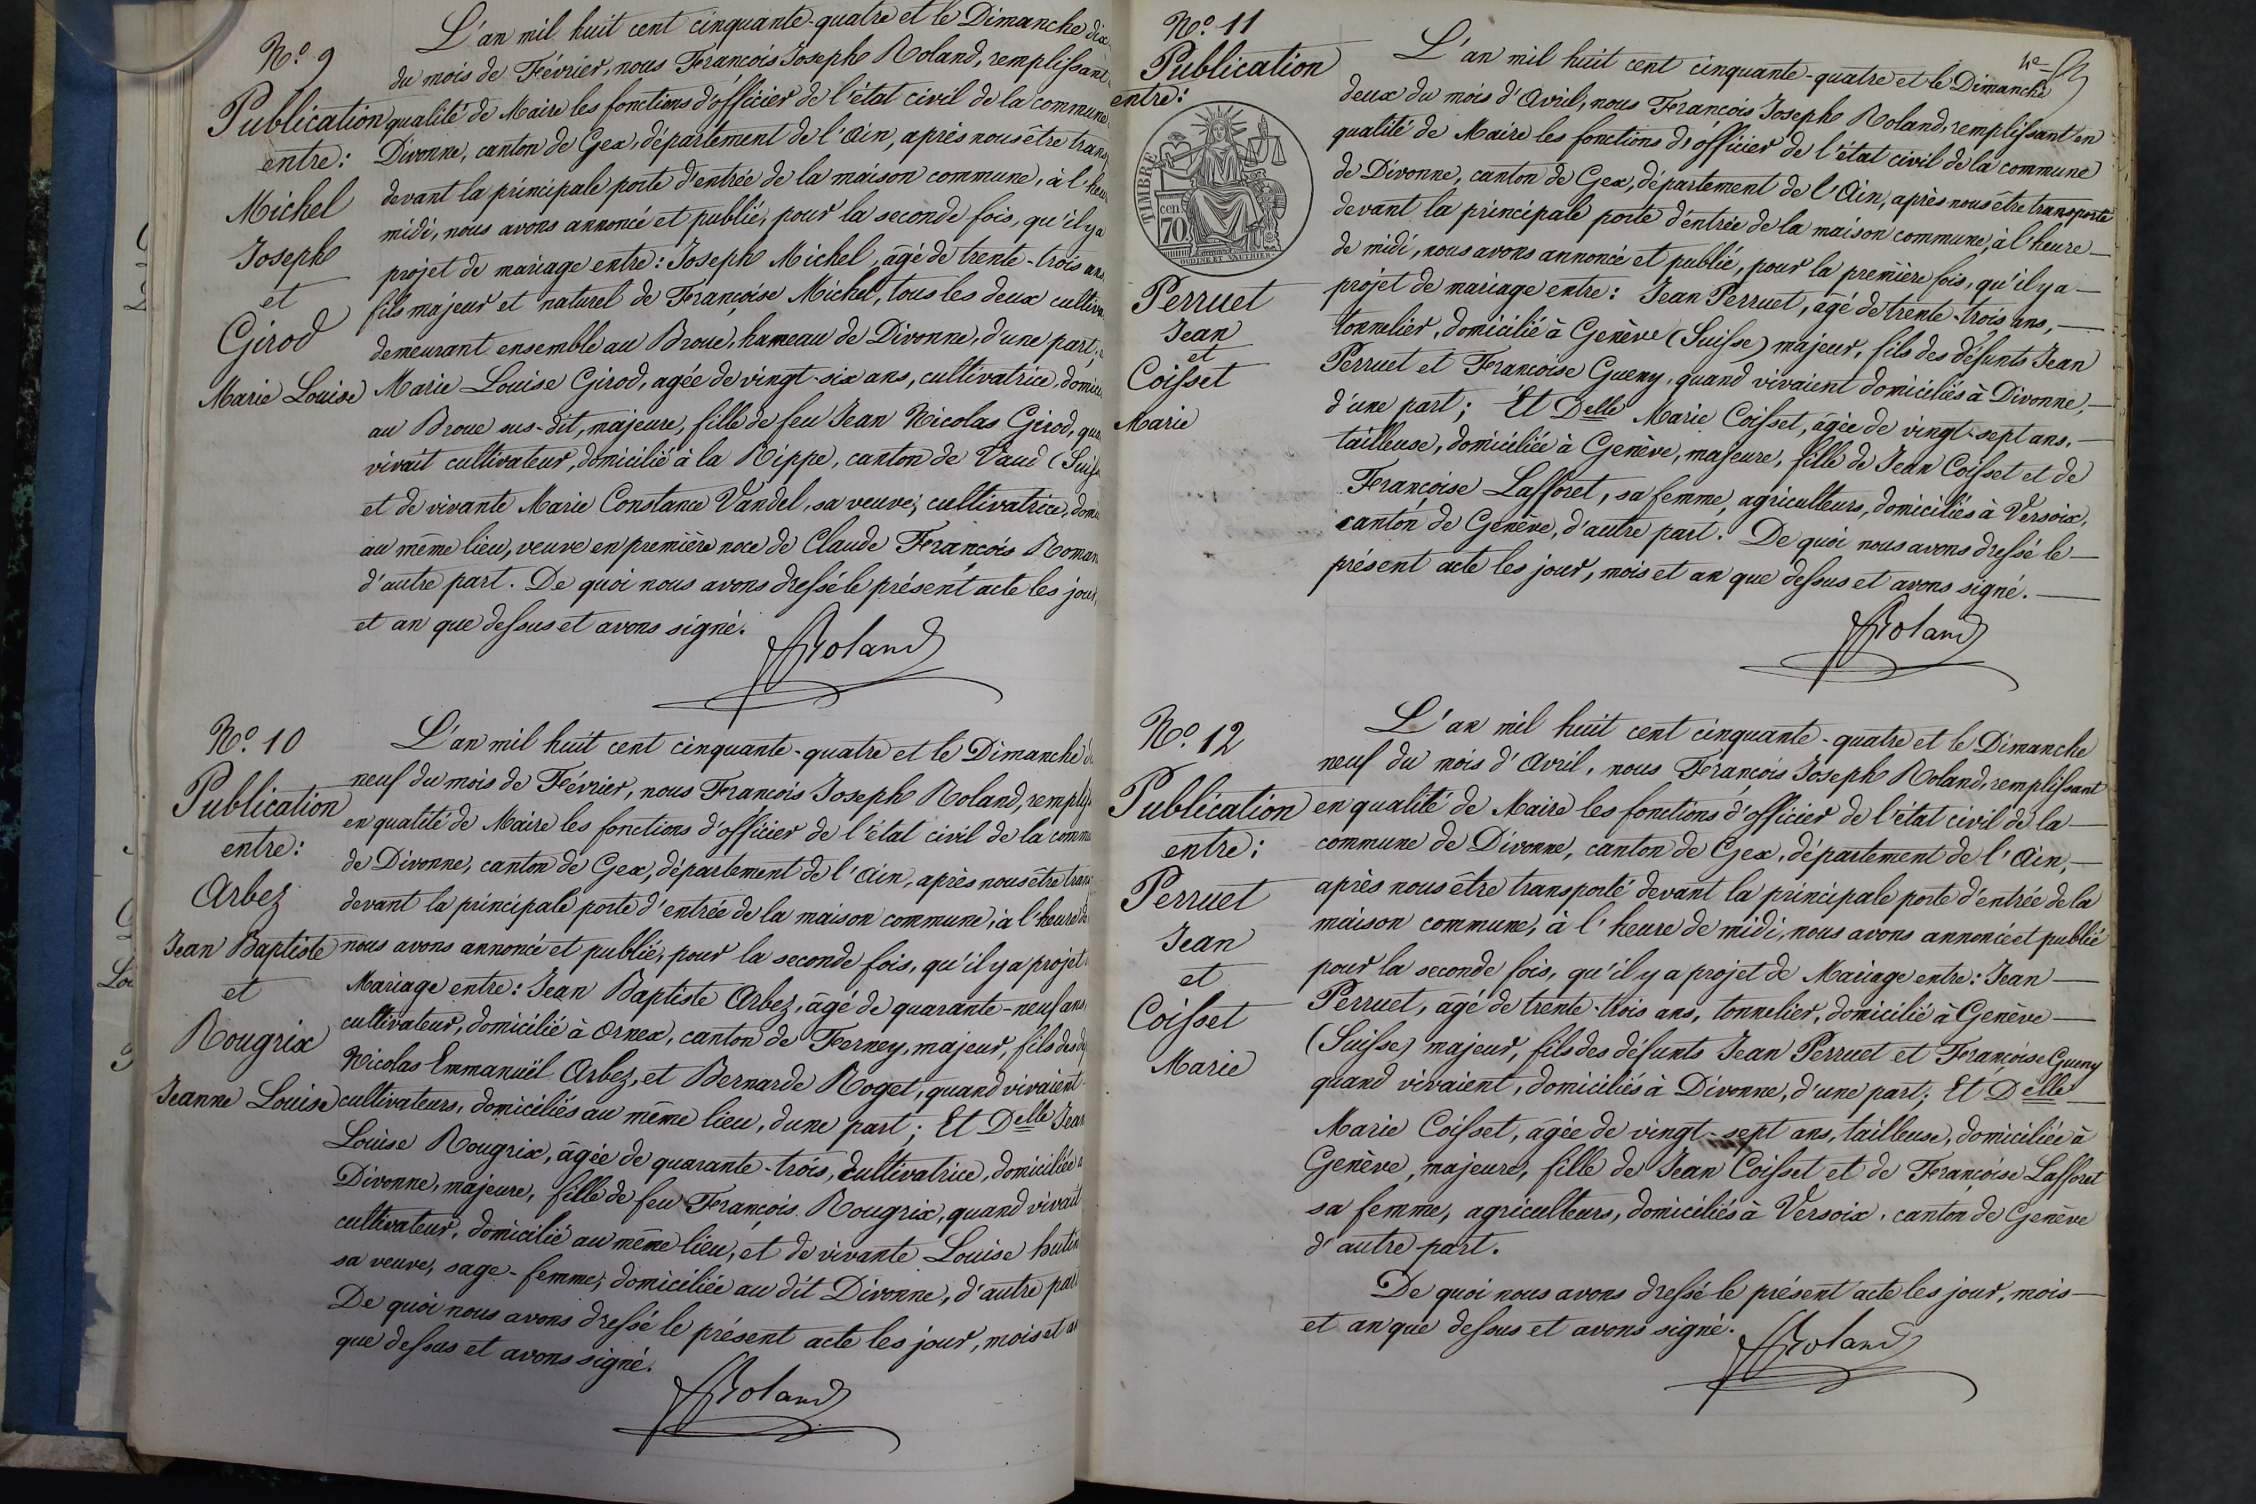 N.º 9
Publication
entre:
Michel
Joseph
et
Girod
Marie Louise
L'an mil huit cent cinquante-quatre et le Dimanche dix
du mois de Février, nous François Joseph Roland, remplissant
qualité de Maire les fonctions d'officier de l'état civil de la commune
Divonne, canton de Gex, département de l'Ain, après nous être trans
devant la principale porte d'entrée de la maison commune, à l'heure
midi, nous avons annoncé et publié, pour la seconde fois, qu'il y a
projet de mariage entre: Joseph Michel, âgé de trente-trois ans
fils majeur et naturel de Françoise Michel, tous les deux cultiva
demeurant ensemble au Broue, hameau de Divonne, d'une part;
Marie Louise Girod, agée de vingt-six ans, cultivatrice, domici
au Broue sus-dit, majeure, fille de feu Jean Nicolas Girod, qua
vivait cultivateur, domicilié à la Rippe, canton de Vaud (Suisse
et de vivante Marie Constance Vandel, sa veuve, cultivatrice, domi
au même lieu, veuve en première noce de Claude François Roman
d'autre part. De quoi nous avons dressé le présent acte les jour,
et an que dessus et avons signé.
Roland
N.º 10
Publication
entre:
Arbez
Jean Baptiste
et
Rougrix
Jeanne Louise
L'an mil huit cent cinquante-quatre et le Dimanche d
neuf du mois de Février, nous François Joseph Roland, remplis
en qualité de Maire les fonctions d'officier de l'état civil de la commu
de Divonne, canton de Gex, département de l'Ain, après nous être trans
devant la principale porte d'entrée de la maison commune, à l'heure de
nous avons annoncé et publié, pour la seconde fois, qu'il y a projet
Mariage entre: Jean Baptiste Arbez, âgé de quarante-neuf ans,
cultivateur, domicilié à Ornex, canton de Ferney, majeur, fils des dé
Nicolas Emmanüel Arbez, et Bernarde Roget, quand vivaient
cultivateurs, domiciliés au même lieu, d'une part; Et Delle Jean
Louise Rougrix, âgée de quarante-trois, cultivatrice, domiciliée à
Divonne, majeure, fille de feu François Rougrix, quand vivait
cultivateur, domicilié au même lieu, et de vivante Louise hutin
sa veuve, sage-femme, domiciliée au dit Divonne, d'autre part
De quoi nous avons dressé le présent acte les jour, mois et an
que dessus et avons signé.
Roland
N.º 11
Publication
entre:
TIMBRE
70 cen
OUDINE ET VAUTHIER
Perruet
Jean
et
Coisset
Marie
4e
L'an mil huit cent cinquante-quatre et le Dimanche
deux du mois d'Avril, nous François Joseph Roland, remplissant en
qualité de Maire les fonctions d'officier de l'état civil de la commune
de Divonne, canton de Gex, département de l'Ain, après nous être transporté
devant la principale porte d'entrée de la maison commune, à l'heure
de midi, nous avons annoncé et publié, pour la première fois, qu'il y a
projet de mariage entre: Jean Perruet, âgé de trente-trois ans,
tonnelier, domicilié à Genève (Suisse) majeur, fils des défunts Jean
Perruet et Françoise Gueny, quand vivaient domiciliés à Divonne,
d'une part; Et Delle Marie Coisset, âgée de vingt-sept ans,
tailleuse, domiciliée à Genève, majeure, fille de Jean Coisset et de
Françoise Lafforet, sa femme, agriculteurs, domiciliés à Versoix,
canton de Genève, d'autre part. De quoi nous avons dressé le
présent acte les jour, mois et an que dessus et avons signé.
Roland
N.º 12
Publication
entre:
Perruet
Jean
et
Coisset
Marie
L'an mil huit cent cinquante-quatre et le Dimanche
neuf du mois d'Avril, nous François Joseph Roland, remplissant
en qualité de Maire les fonctions d'officier de l'état civil de la
commune de Divonne, canton de Gex, département de l'Ain,
après nous être transporté devant la principale porte d'entrée de la
maison commune, à l'heure de midi, nous avons annoncé et publié
pour la seconde fois, qu'il y a projet de Mariage entre: Jean
Perruet, âgé de trente-trois ans, tonnelier, domicilié à Genève
(Suisse) majeur, fils des défunts Jean Perruet et Françoise Gueny
quand vivaient, domiciliés à Divonne, d'une part; Et Delle
Marie Coisset, âgée de vingt-sept ans, tailleuse, domiciliée à
Genève, majeure, fille de Jean Coisset et de Françoise Lafforet
sa femme, agriculteurs, domiciliés à Versoix, canton de Genève
d'autre part.
De quoi nous avons dressé le présent acte les jour, mois
et an que dessus et avons signé.
Roland